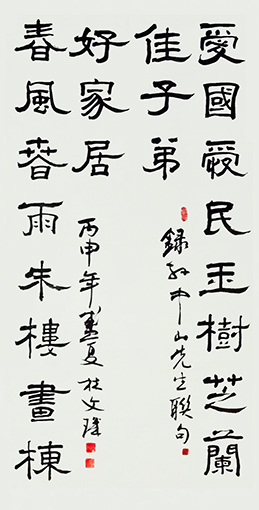 愛國愛民玉樹芝蘭
佳子弟
錄孫中山先生聯句
春風春雨朱樓畫棟
好家居
丙申年夏杜文